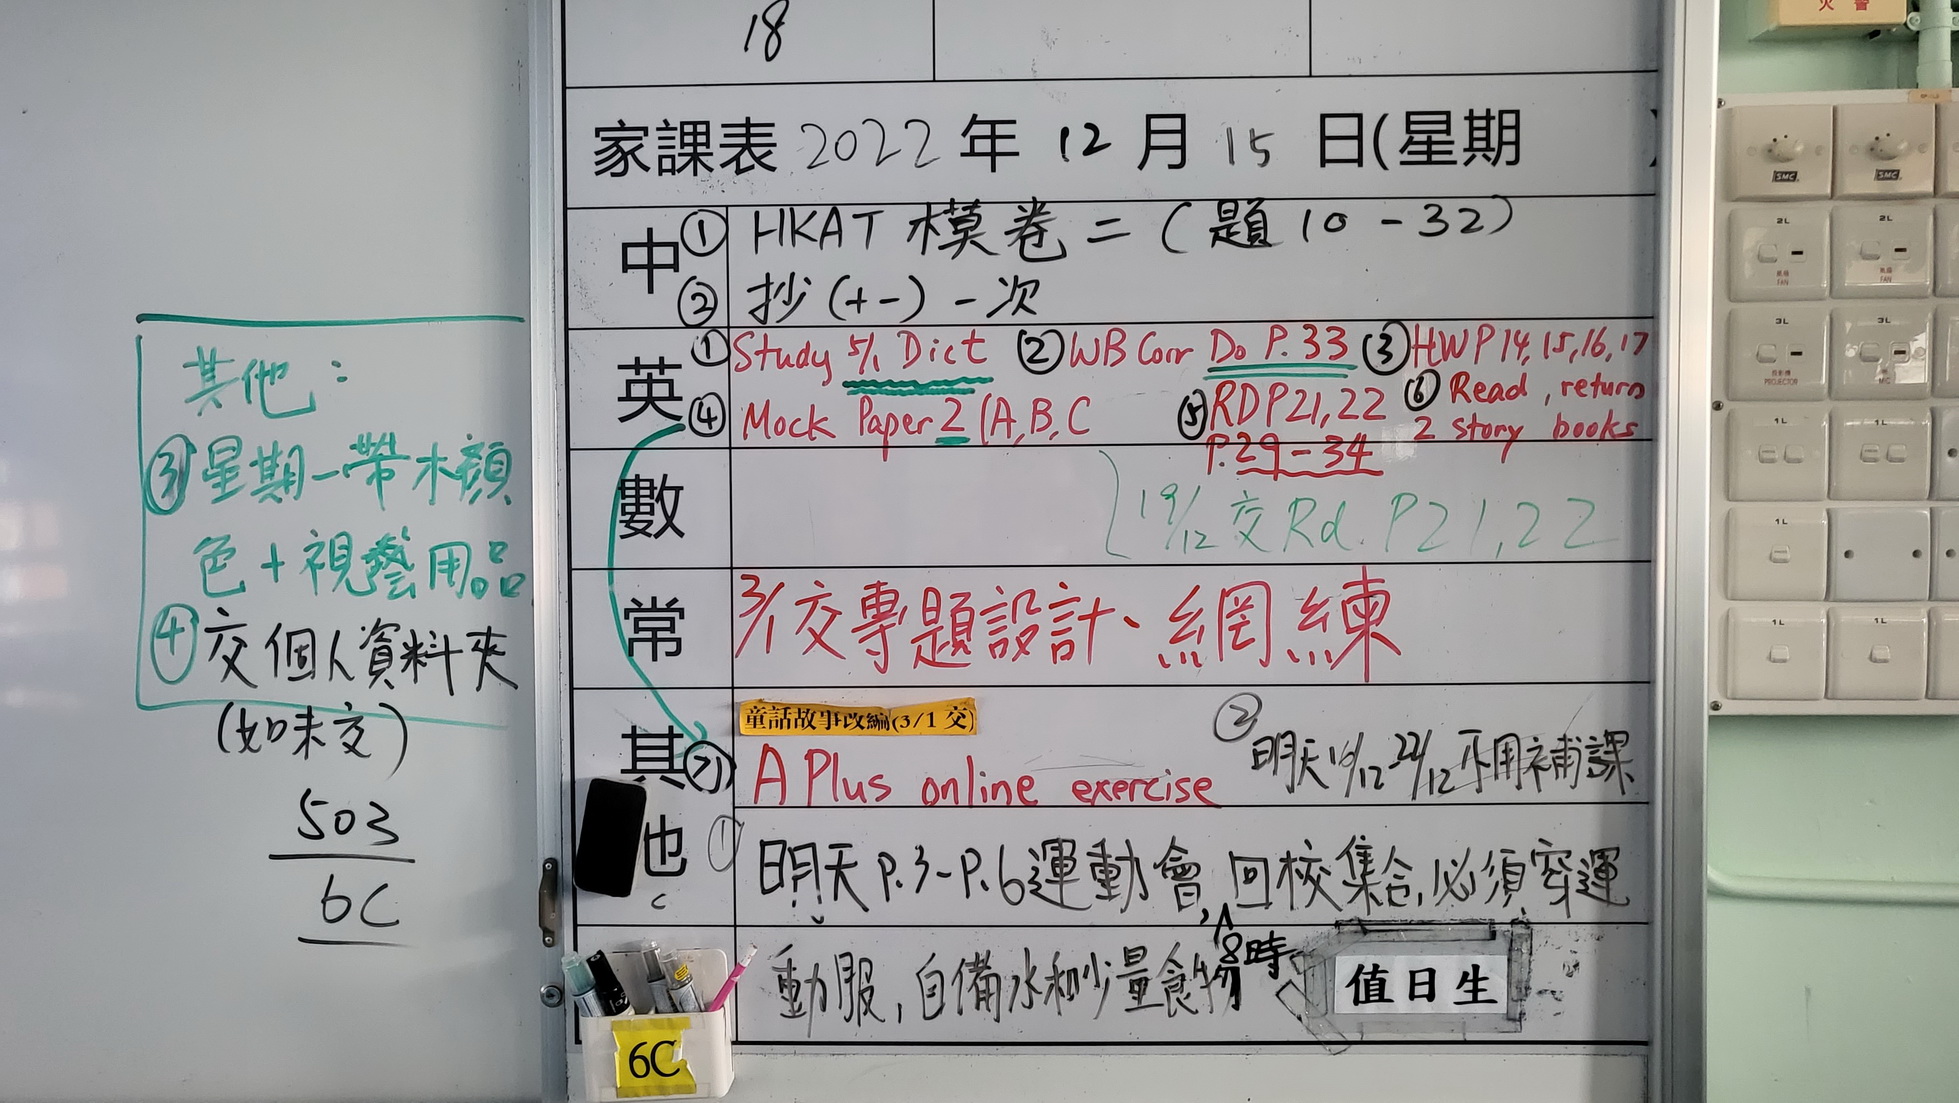 18
家課表 2022 年 12 月 15 日(星期 )
中 ① HKAT 模卷二 (題 10 - 32)
② 抄 (+-) 一次
英 ① Study 5/1 Dict ② WB Corr Do P.33 ③ HW P14,15,16,17
④ Mock Paper 2 (A,B,C ⑤ RD P21,22 ⑥ Read, return
P.29-34 2 story books
數 19/12 交 Rd. P21,22
常 3/1 交專題設計、網練
童話故事改編(3/1 交)
其 ⑦ A Plus online exercise ② 明天 16/12 22/12 不用補課
他 ① 明天 P.3-P.6 運動會, 回校集合, 必須穿運
8時
動服, 自備水和少量食物
值日生
6C
其他:
③ 星期一帶木顏
色+視藝用品
④ 交個人資料夾
(如未交)
503
6C
火警
SMC
SMC
2L
2L
風扇
FAN
風扇
FAN
3L
3L
投影機
PROJECTOR
MIC
1L
1L
1L
1L
1L